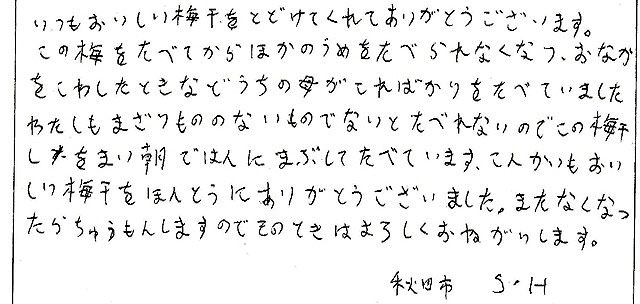 いつもおいしい梅干をとどけてくれてありがとうございます。
この梅をたべてからほかのうめをたべられなくなつ、おなか
をこわしたときなどうちの母がこればかりをたべていました
わたしもまざりもののないものでないとたべれないのでこの梅干
しをまい朝ごはんにまぶしてたべています、こんかいもおい
しい梅干をほんとうにありがとうございました。またなくなっ
たらちゅうもんしますのでそのときはよろしくおねがいします。
秋田市 S・H